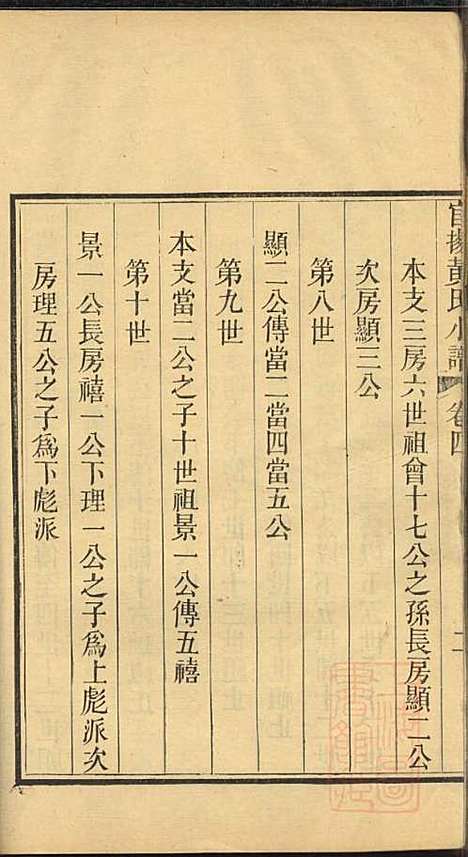 宦揚黃氏小譜 卷四
二
本支三房六世祖曾十七公之孫長房顯二公
次房顯三公
第八世
顯二公傳當二當四當五公
第九世
本支當二公之子十世祖景一公傳五禧
第十世
景一公長房禧一公下理一公之子爲上彪派次
房理五公之子爲下彪派